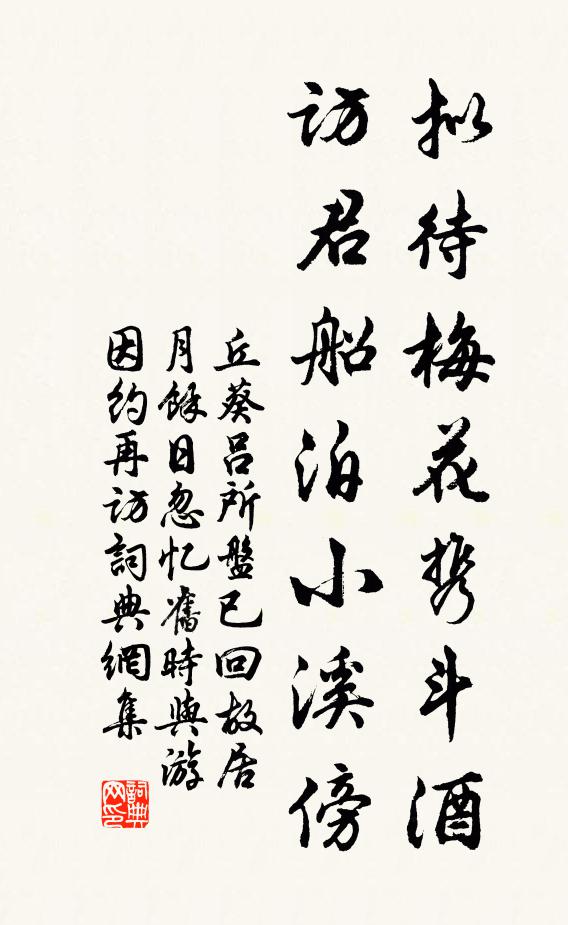 拟待梅花携斗酒
访君船泊小溪傍
丘葵吕所盤已回故居
月馀日忽忆舊時與游
因约再访詞典網集
詞典
网印